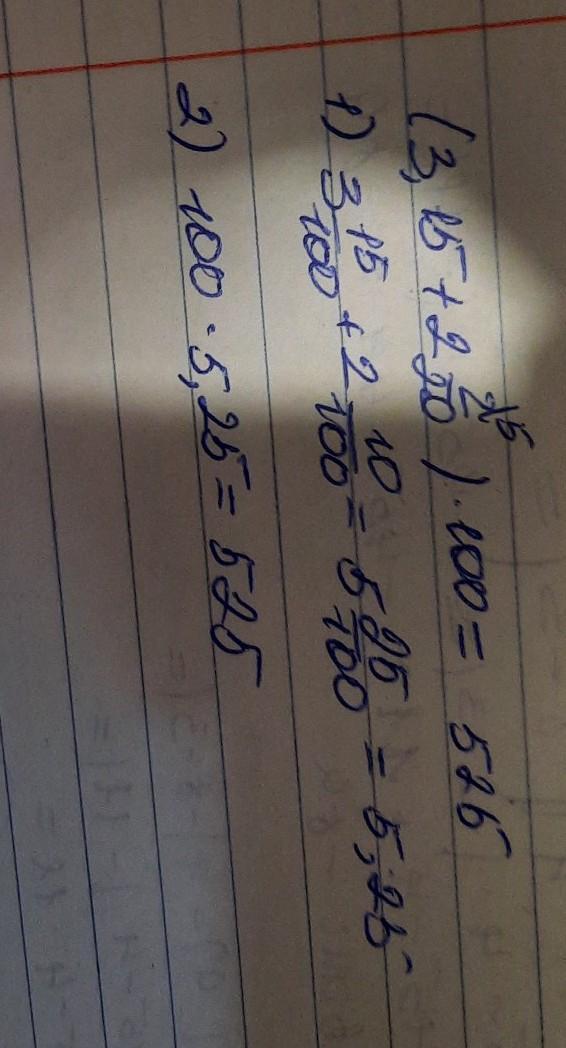 (3,15 + 2 2/20 \5) · 100 = 525
1) 3 15/100 + 2 10/100 = 5 25/100 = 5,25
2) 100 · 5,25 = 525